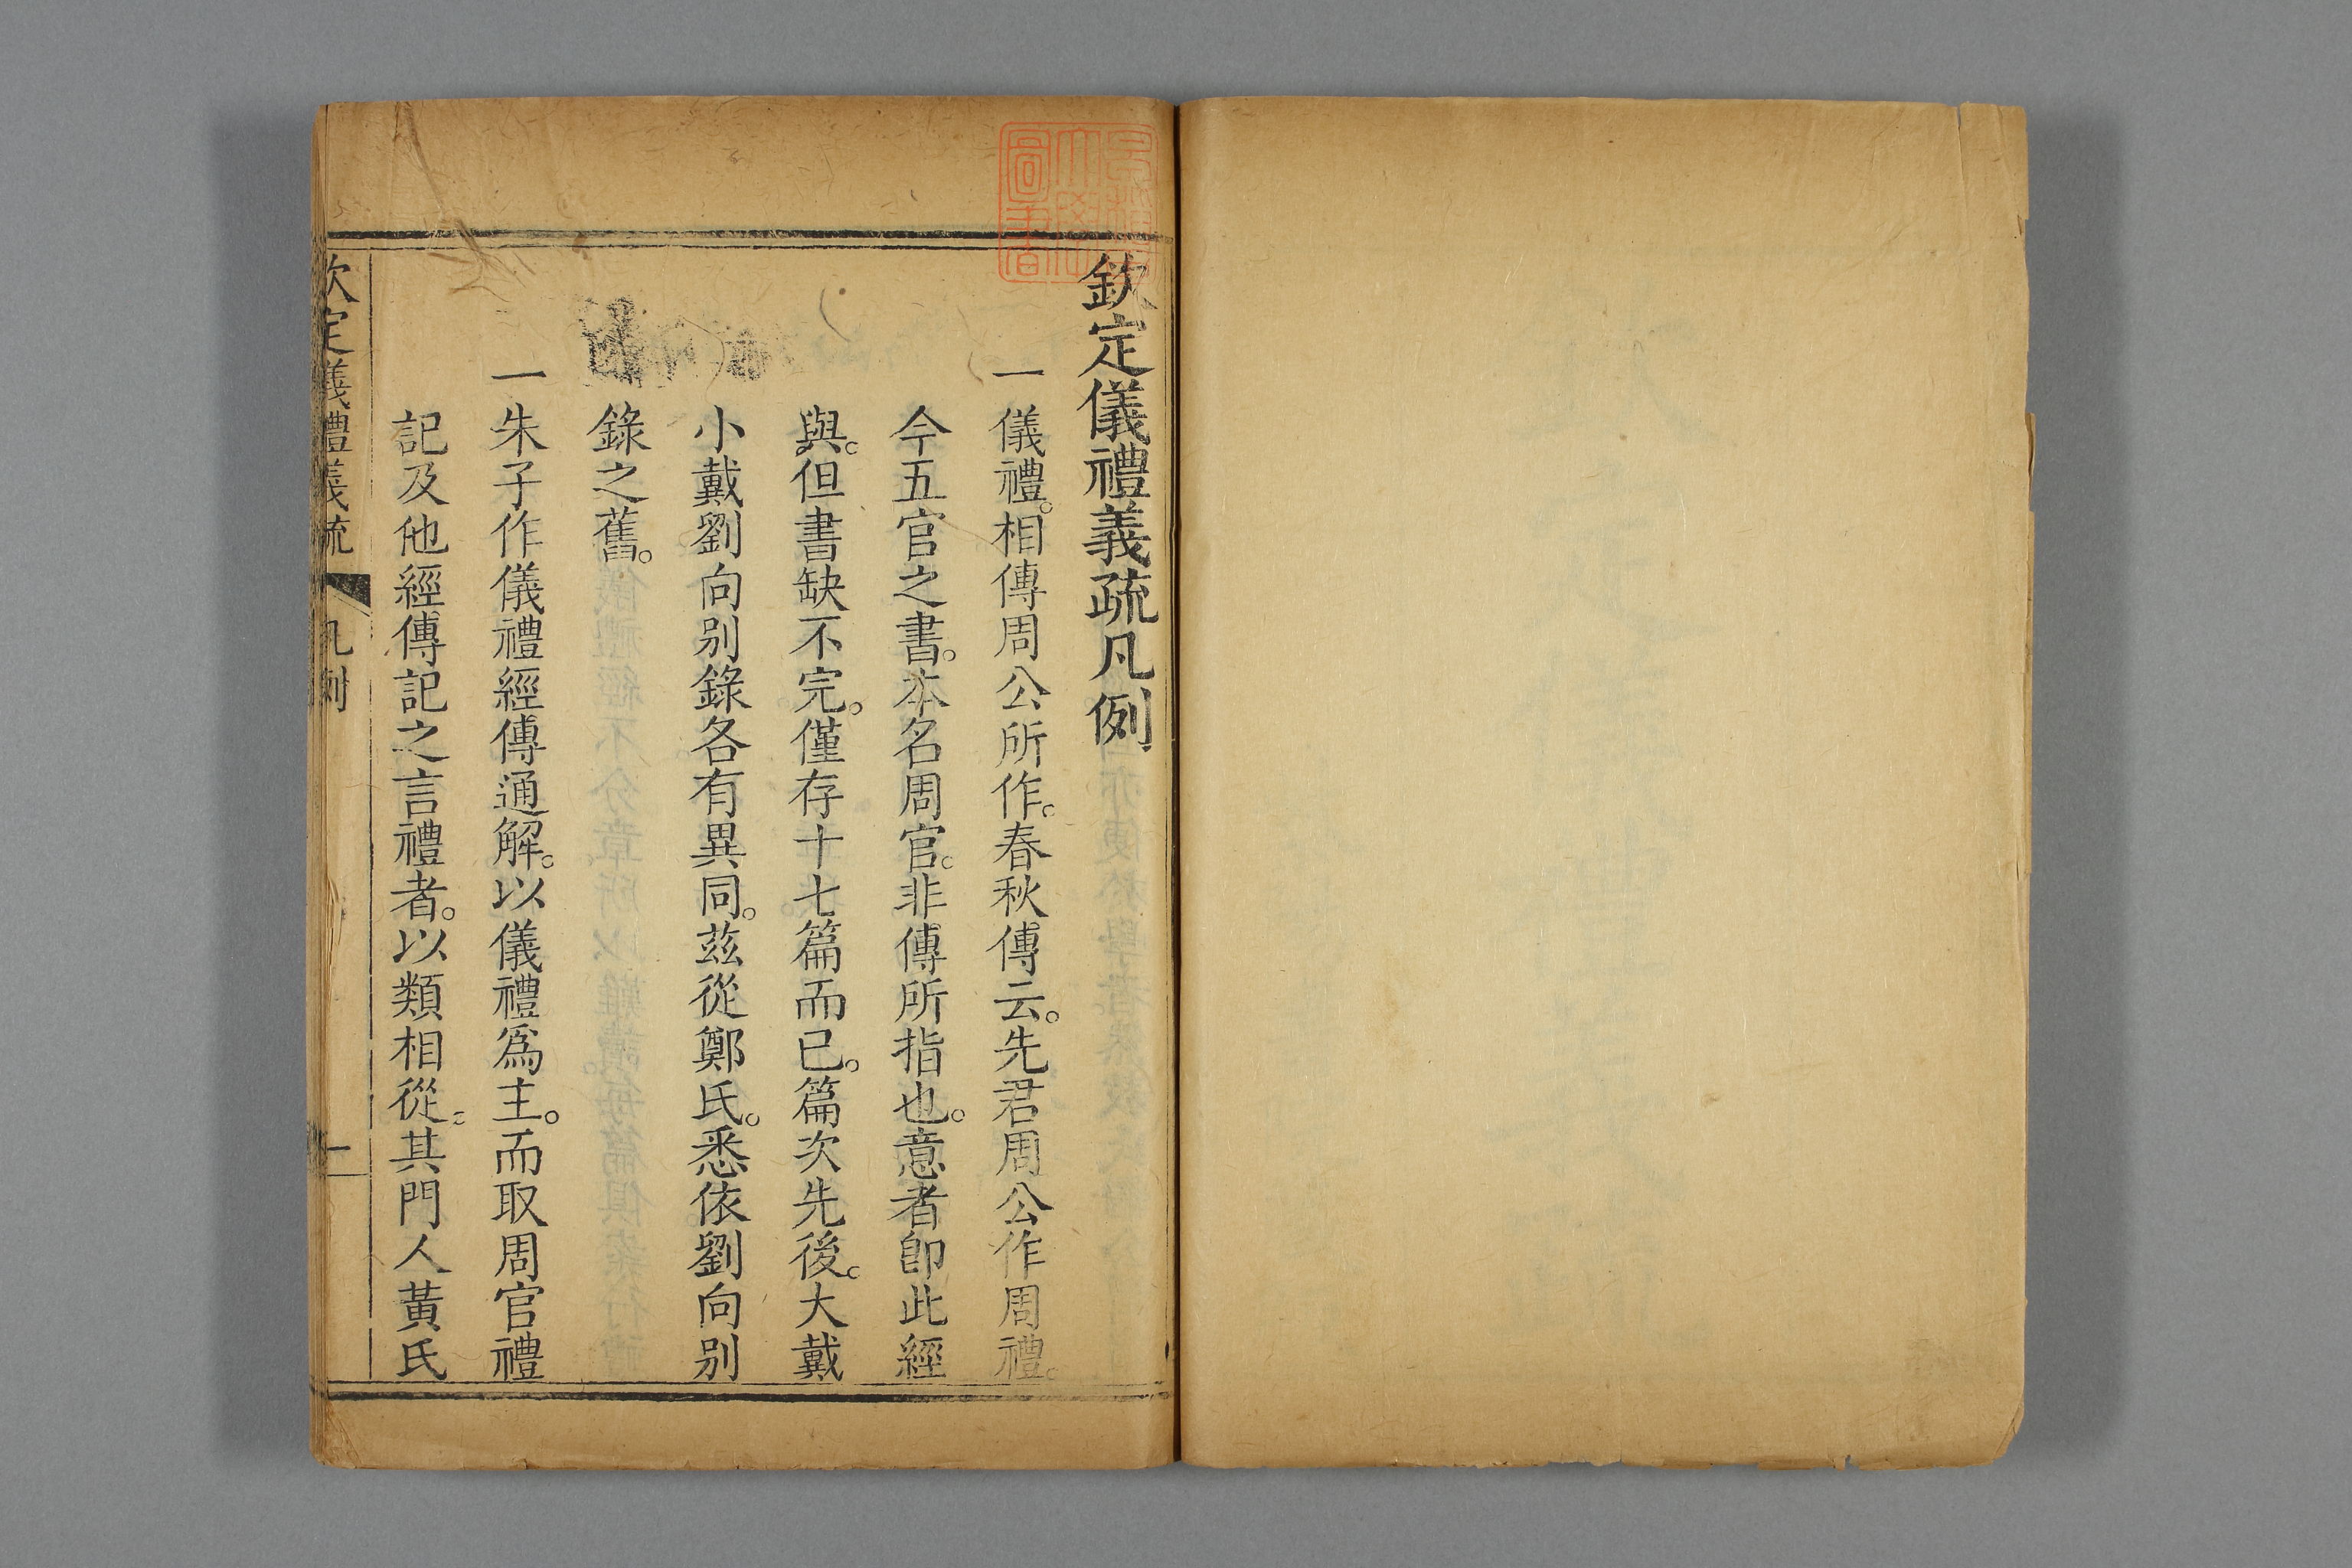 欽定儀禮義疏凡例
一儀禮。相傳周公所作。春秋傳云。先君周公作周禮。
今五官之書。本名周官。非傳所指也。意者卽此經
與。但書缺不完。僅存十七篇而已。篇次先後。大戴
小戴劉向别錄各有異同。茲從鄭氏。悉依劉向别
錄之舊。
一朱子作儀禮經傳通解。以儀禮爲主。而取周官禮
記及他經傳記之言禮者。以類相從。其門人黃氏
欽定儀禮義疏 凡例 一